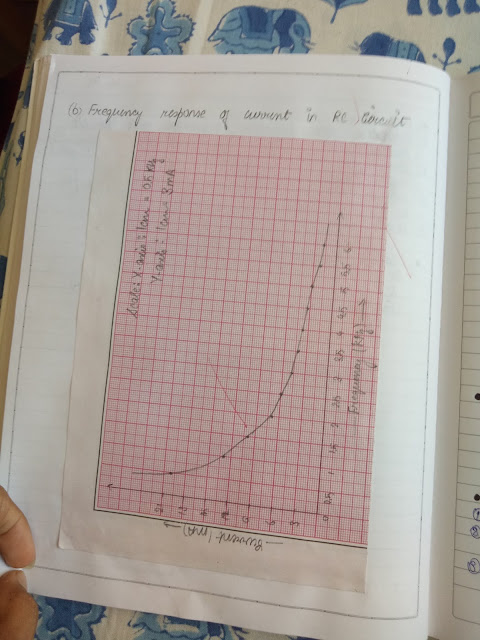 (6) Frequency response of current in RC circuit
Scale: X-axis: 1cm = 0.5 KHz
Y-axis: 1cm = 3mA
Current (mA) →
21
15
12
9
6
3
0
0.5
1
1.5
2
2.5
3
3.5
4
4.5
5
5.5
6
Frequency (KHz) →